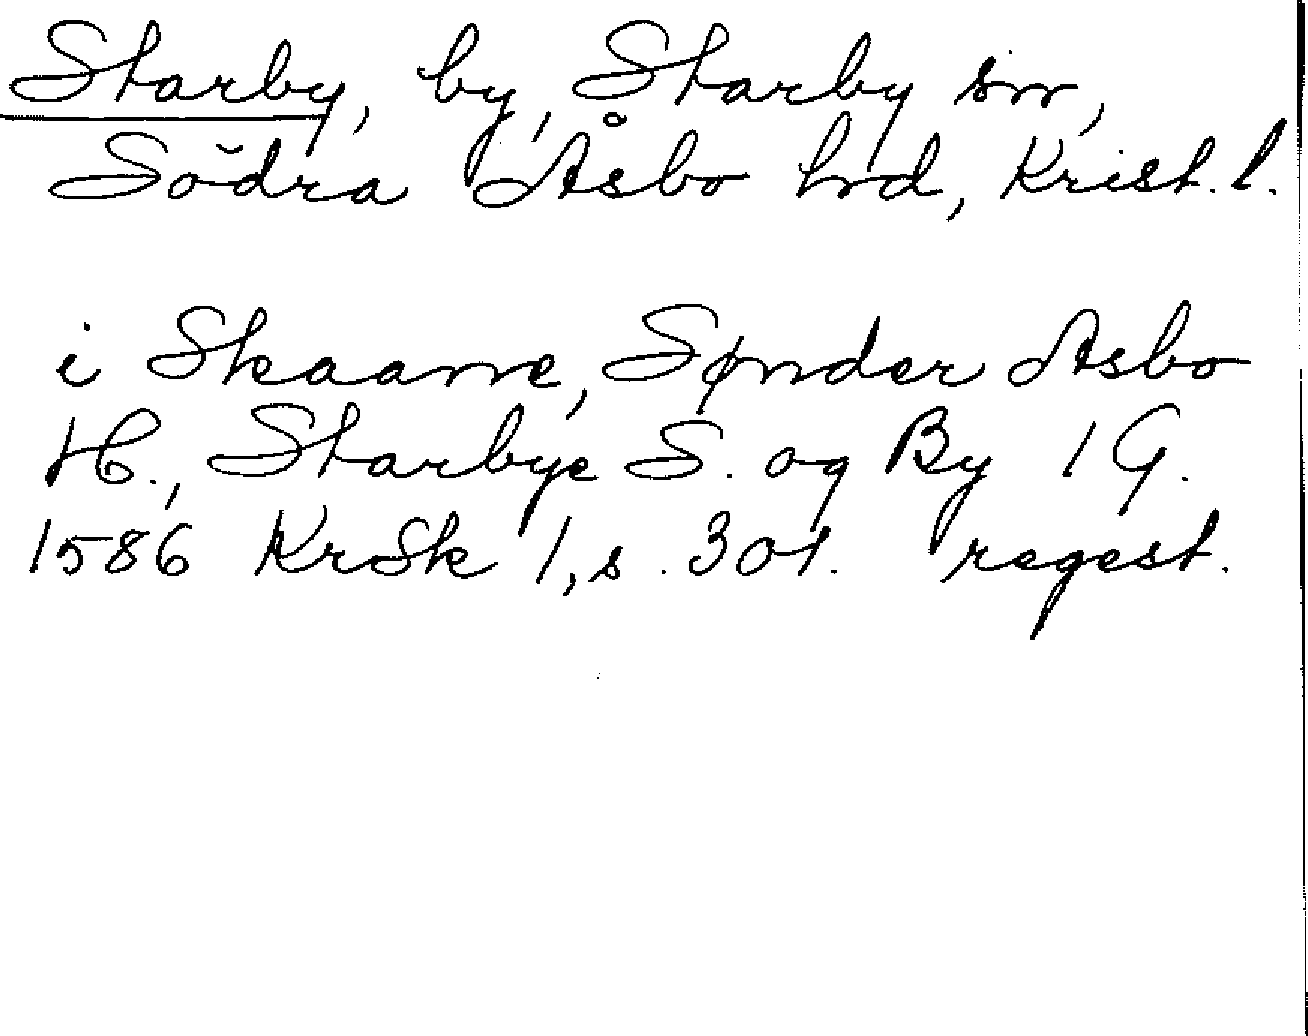 Starby, by, Starby sn,
Södra Åsbo hrd, Krist. l.
i Skaane, Sønder Asbo
H., Starbye S. og By 1 G.
1586 KrSk 1, s. 301. regest.